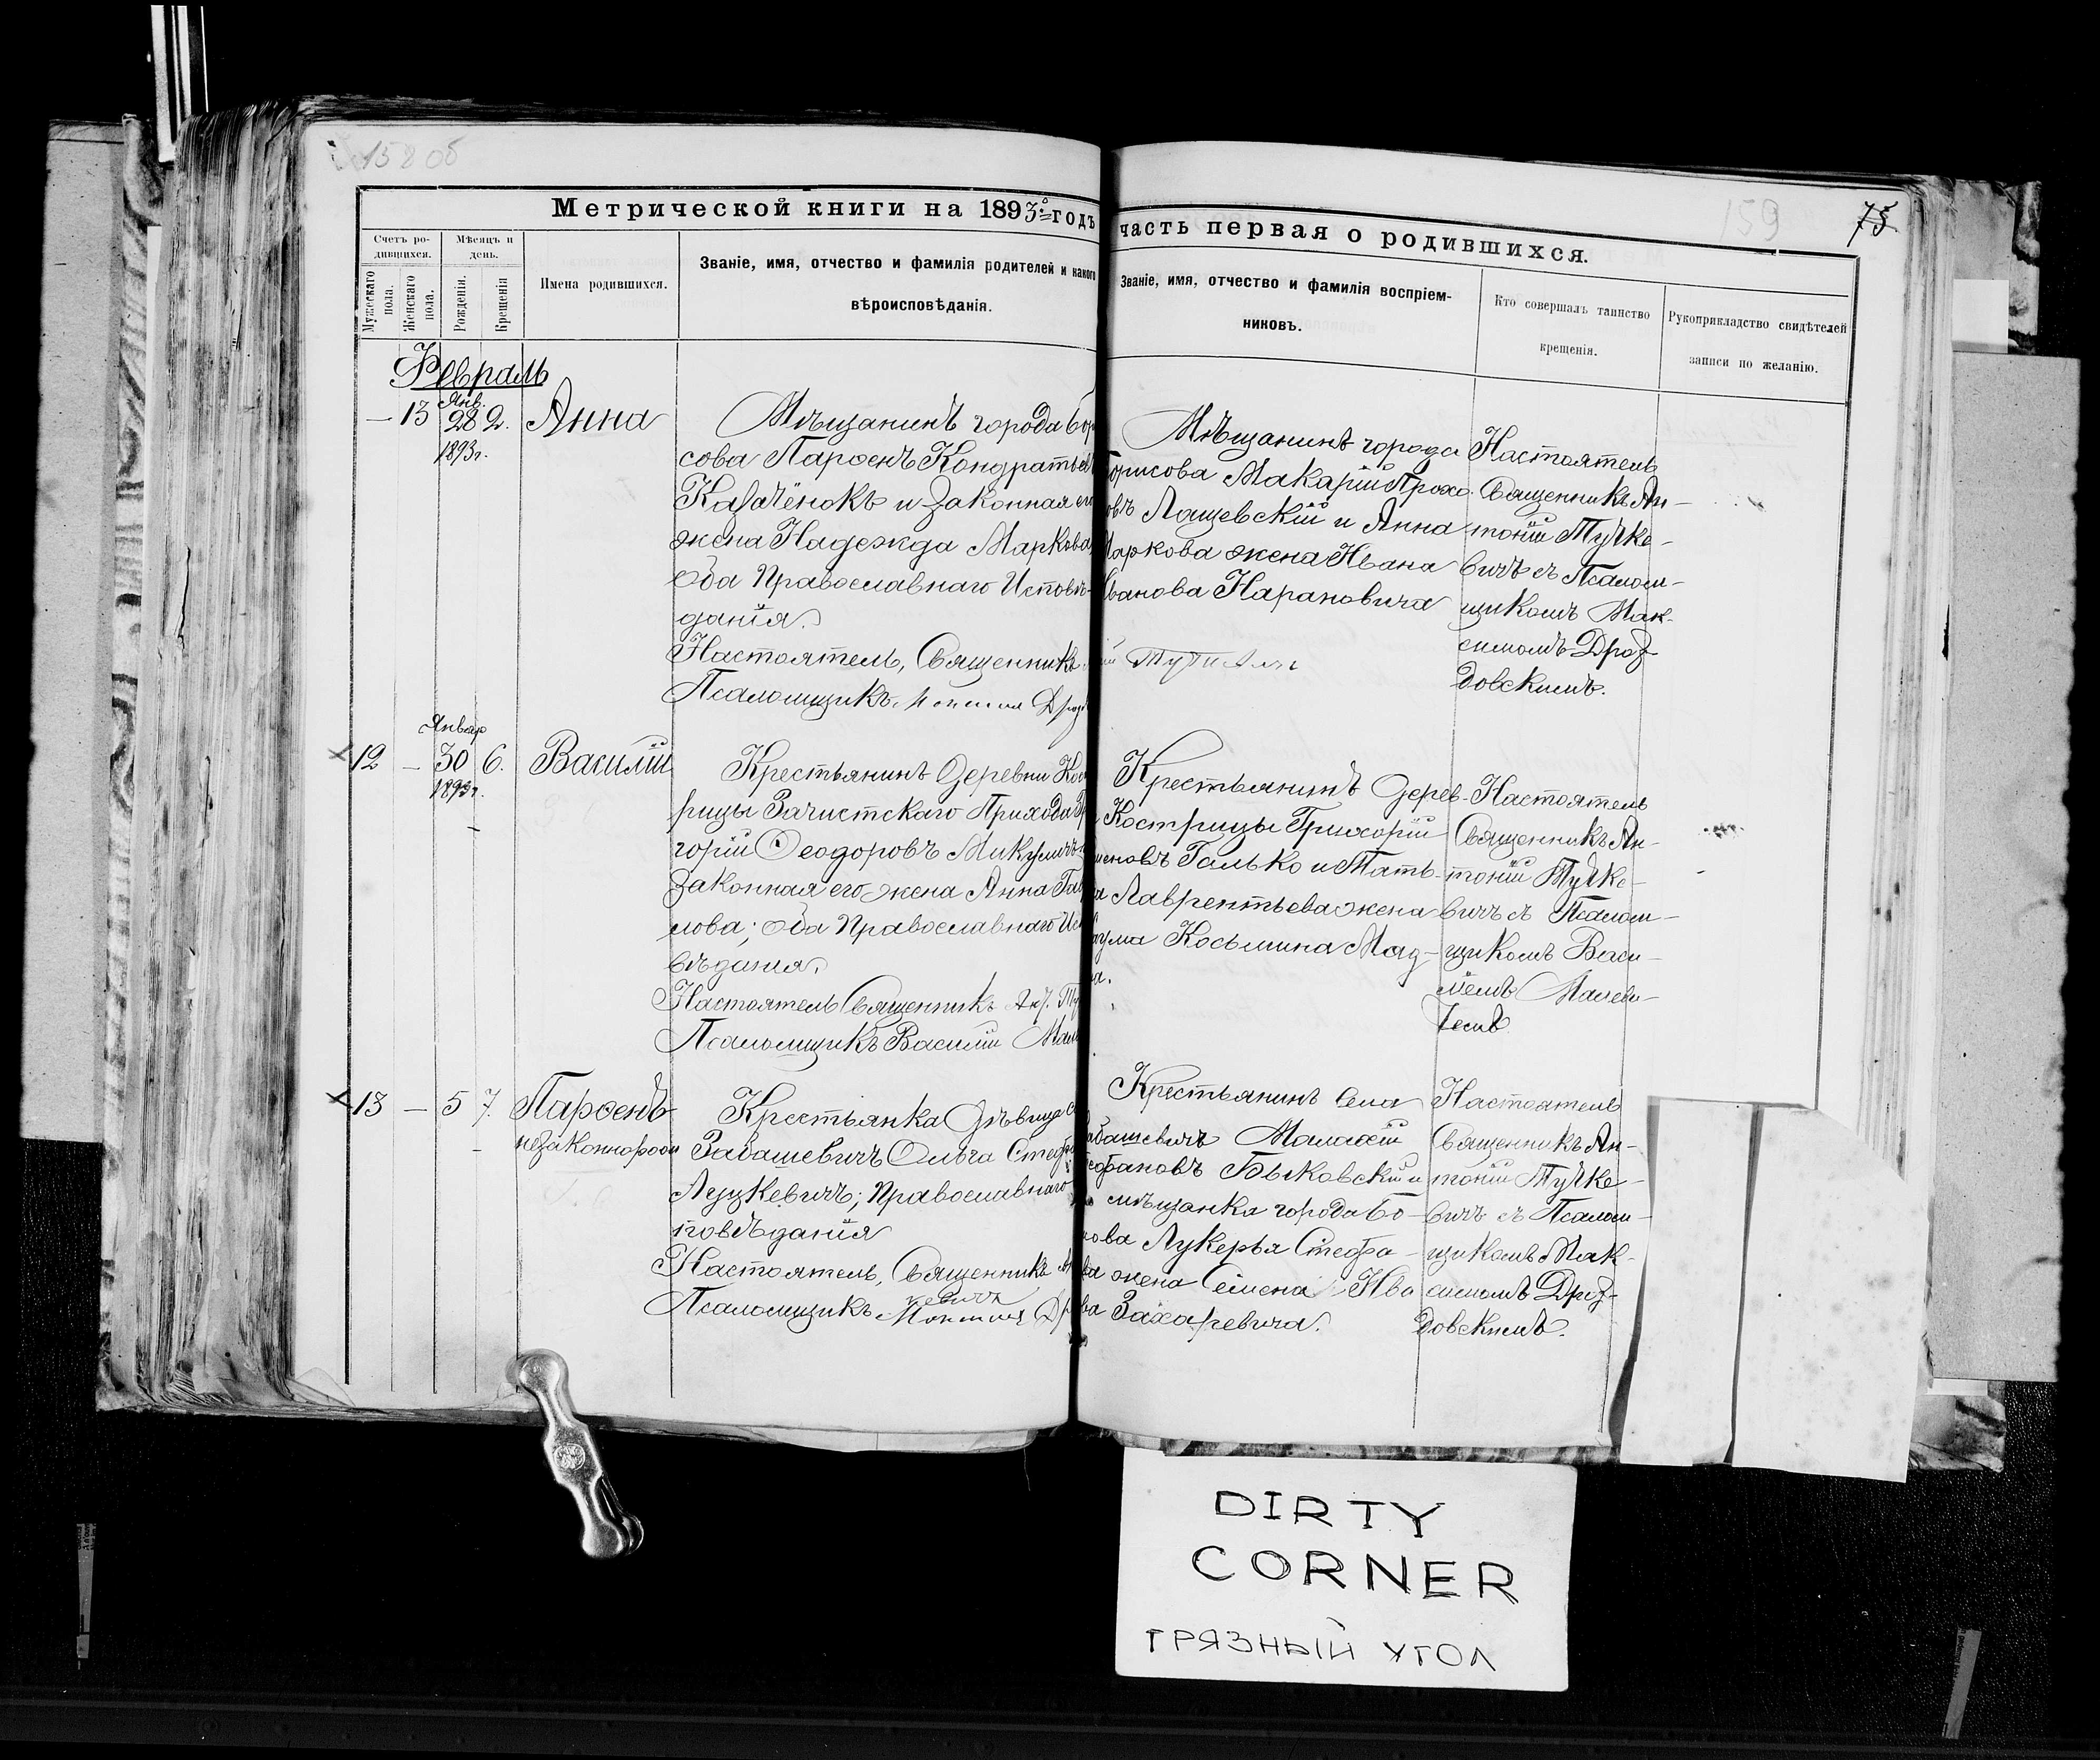 158 об
159
75
Метрической книги на 1893 годъ
часть первая о родившихся.
Счетъ ро-
дившихся.
Мужескаго пола.
Женскаго пола.
Мѣсяцъ и
день.
Рожденія.
Крещенія
Имена родившихся.
Званіе, имя, отчество и фамилія родителей и какого
вѣроисповѣданія.
Званіе, имя, отчество и фамилія воспріем-
никовъ.
Кто совершалъ таинство
крещенія.
Рукоприкладство свидѣтелей
записи по желанію.
Февраль
Янв.
— 13 28 2. Анна
1893 г.
Мѣщанинъ города Бор
сова Парѳенъ Кондратьевъ
Казачёнокъ и законная его
жена Надежда Маркова,
оба Православнаго Исповѣ-
данія.
Настоятель, Священникъ
Псаломщикъ
Мѣщанинъ города
орисова Макарій Прохо
овъ Лащевскій и Анна
Маркова жена Ивана
Иванова Нарановича
Настоятель
Священникъ Ан-
тоній Тучке-
вичъ съ Псалом-
щикомъ Мак-
симомъ Дроз-
довскимъ.
Январ
12 — 30 6. Василій
1893 г.
Крестьянинъ деревни Кос
рицы Зачистскаго Прихода Гри
горій Ѳеодоровъ Микуличъ
законная его жена Анна Гав
лова; оба Православнаго Ис
вѣданія.
Настоятель Священникъ Ант. Ту
Псаломщикъ Василій Мал
Крестьянинъ дерев-
Кострицы Григорій
меновъ Галько и Мать-
Лаврентьева жена
аума Косьмина Мад-
а.
Настоятель
Священникъ Ан-
тоній Тучке-
вичъ съ Псалом-
щикомъ Васи-
ліемъ Малеви-
чемъ
13 — 5 7. Парѳенъ
незаконнорож
Крестьянка дѣвица с
Забашевичъ Ольга Стеф
Луцкевичъ; Православнаго
повѣданія
Настоятель, Священникъ
Псаломщикъ
Крестьянинъ села
абашевичъ Малахій
Стефановъ Быковскій и
мѣщанка города Бо-
сова Лукерья Стефа-
ва жена Семена Ива
ва Захаревича.
Настоятель
Священникъ Ан-
тоній Тучке-
вичъ съ Псалом-
щикомъ Мак-
симомъ Дроз-
довскимъ.
DIRTY
CORNER
ГРЯЗНЫЙ УГОЛ